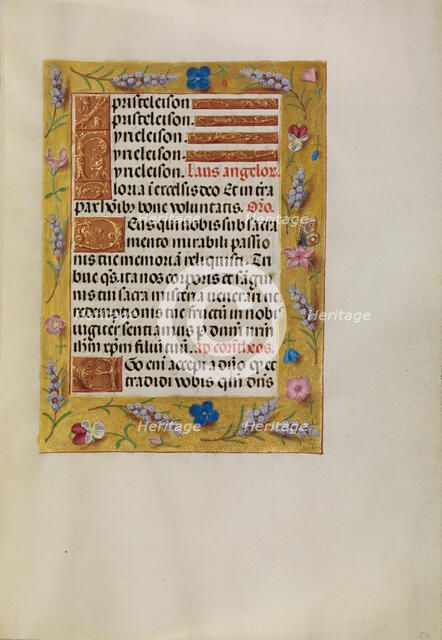 Xpristeleison.
Xpristeleison.
Kyrieleison.
Kyrieleison.
Kyrieleison. Laus angelor.
Gloria i excelsis deo Et in tra
pax hoibȝ bone voluntatis. Oro.
Deus qui nobis sub sacra
mento mirabili passio
nis tue memoriam reliquisti: Tri
bue qs. ita nos corporis et sagui
nis tui sacra misteria venerari ut re
demptionis tue fructu in nobis
iugiter sentiamus. p dnm nrm
ihm xpm filiu tuu. ad corintheos.
Ego eni accepi a dno qd et
tradidi vobis qm dns
Heritage
Heritage
Heritage
Heritage
Heritage